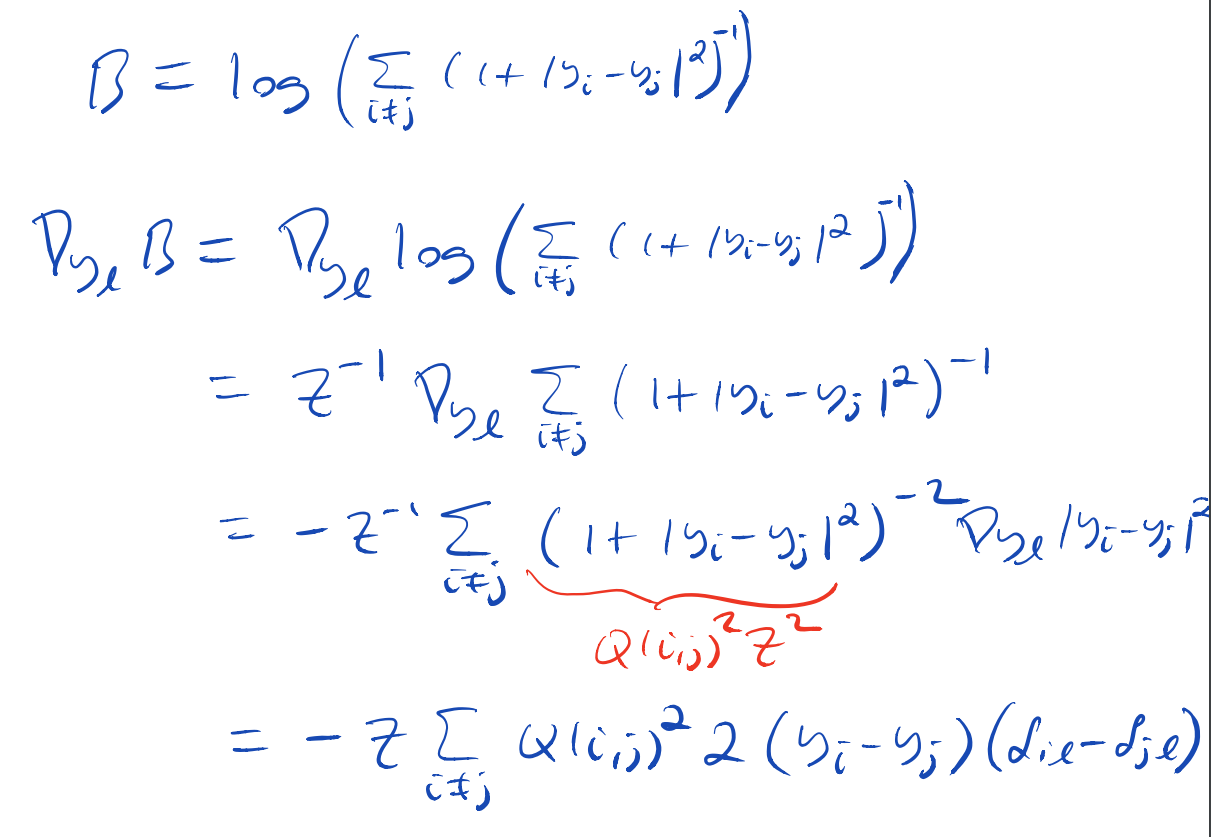 B = log(∑_{i≠j} (1+|y_i-y_j|^2)^{-1})
∇_{y_ℓ} B = ∇_{y_ℓ} log(∑_{i≠j} (1+|y_i-y_j|^2)^{-1})
= Z^{-1} ∇_{y_ℓ} ∑_{i≠j} (1+|y_i-y_j|^2)^{-1}
= -Z^{-1} ∑_{i≠j} (1+|y_i-y_j|^2)^{-2} ∇_{y_ℓ} |y_i-y_j|^2
Q(i,j)^2 Z^2
= -Z ∑_{i≠j} Q(i,j)^2 2(y_i-y_j)(δ_{iℓ}-δ_{jℓ})